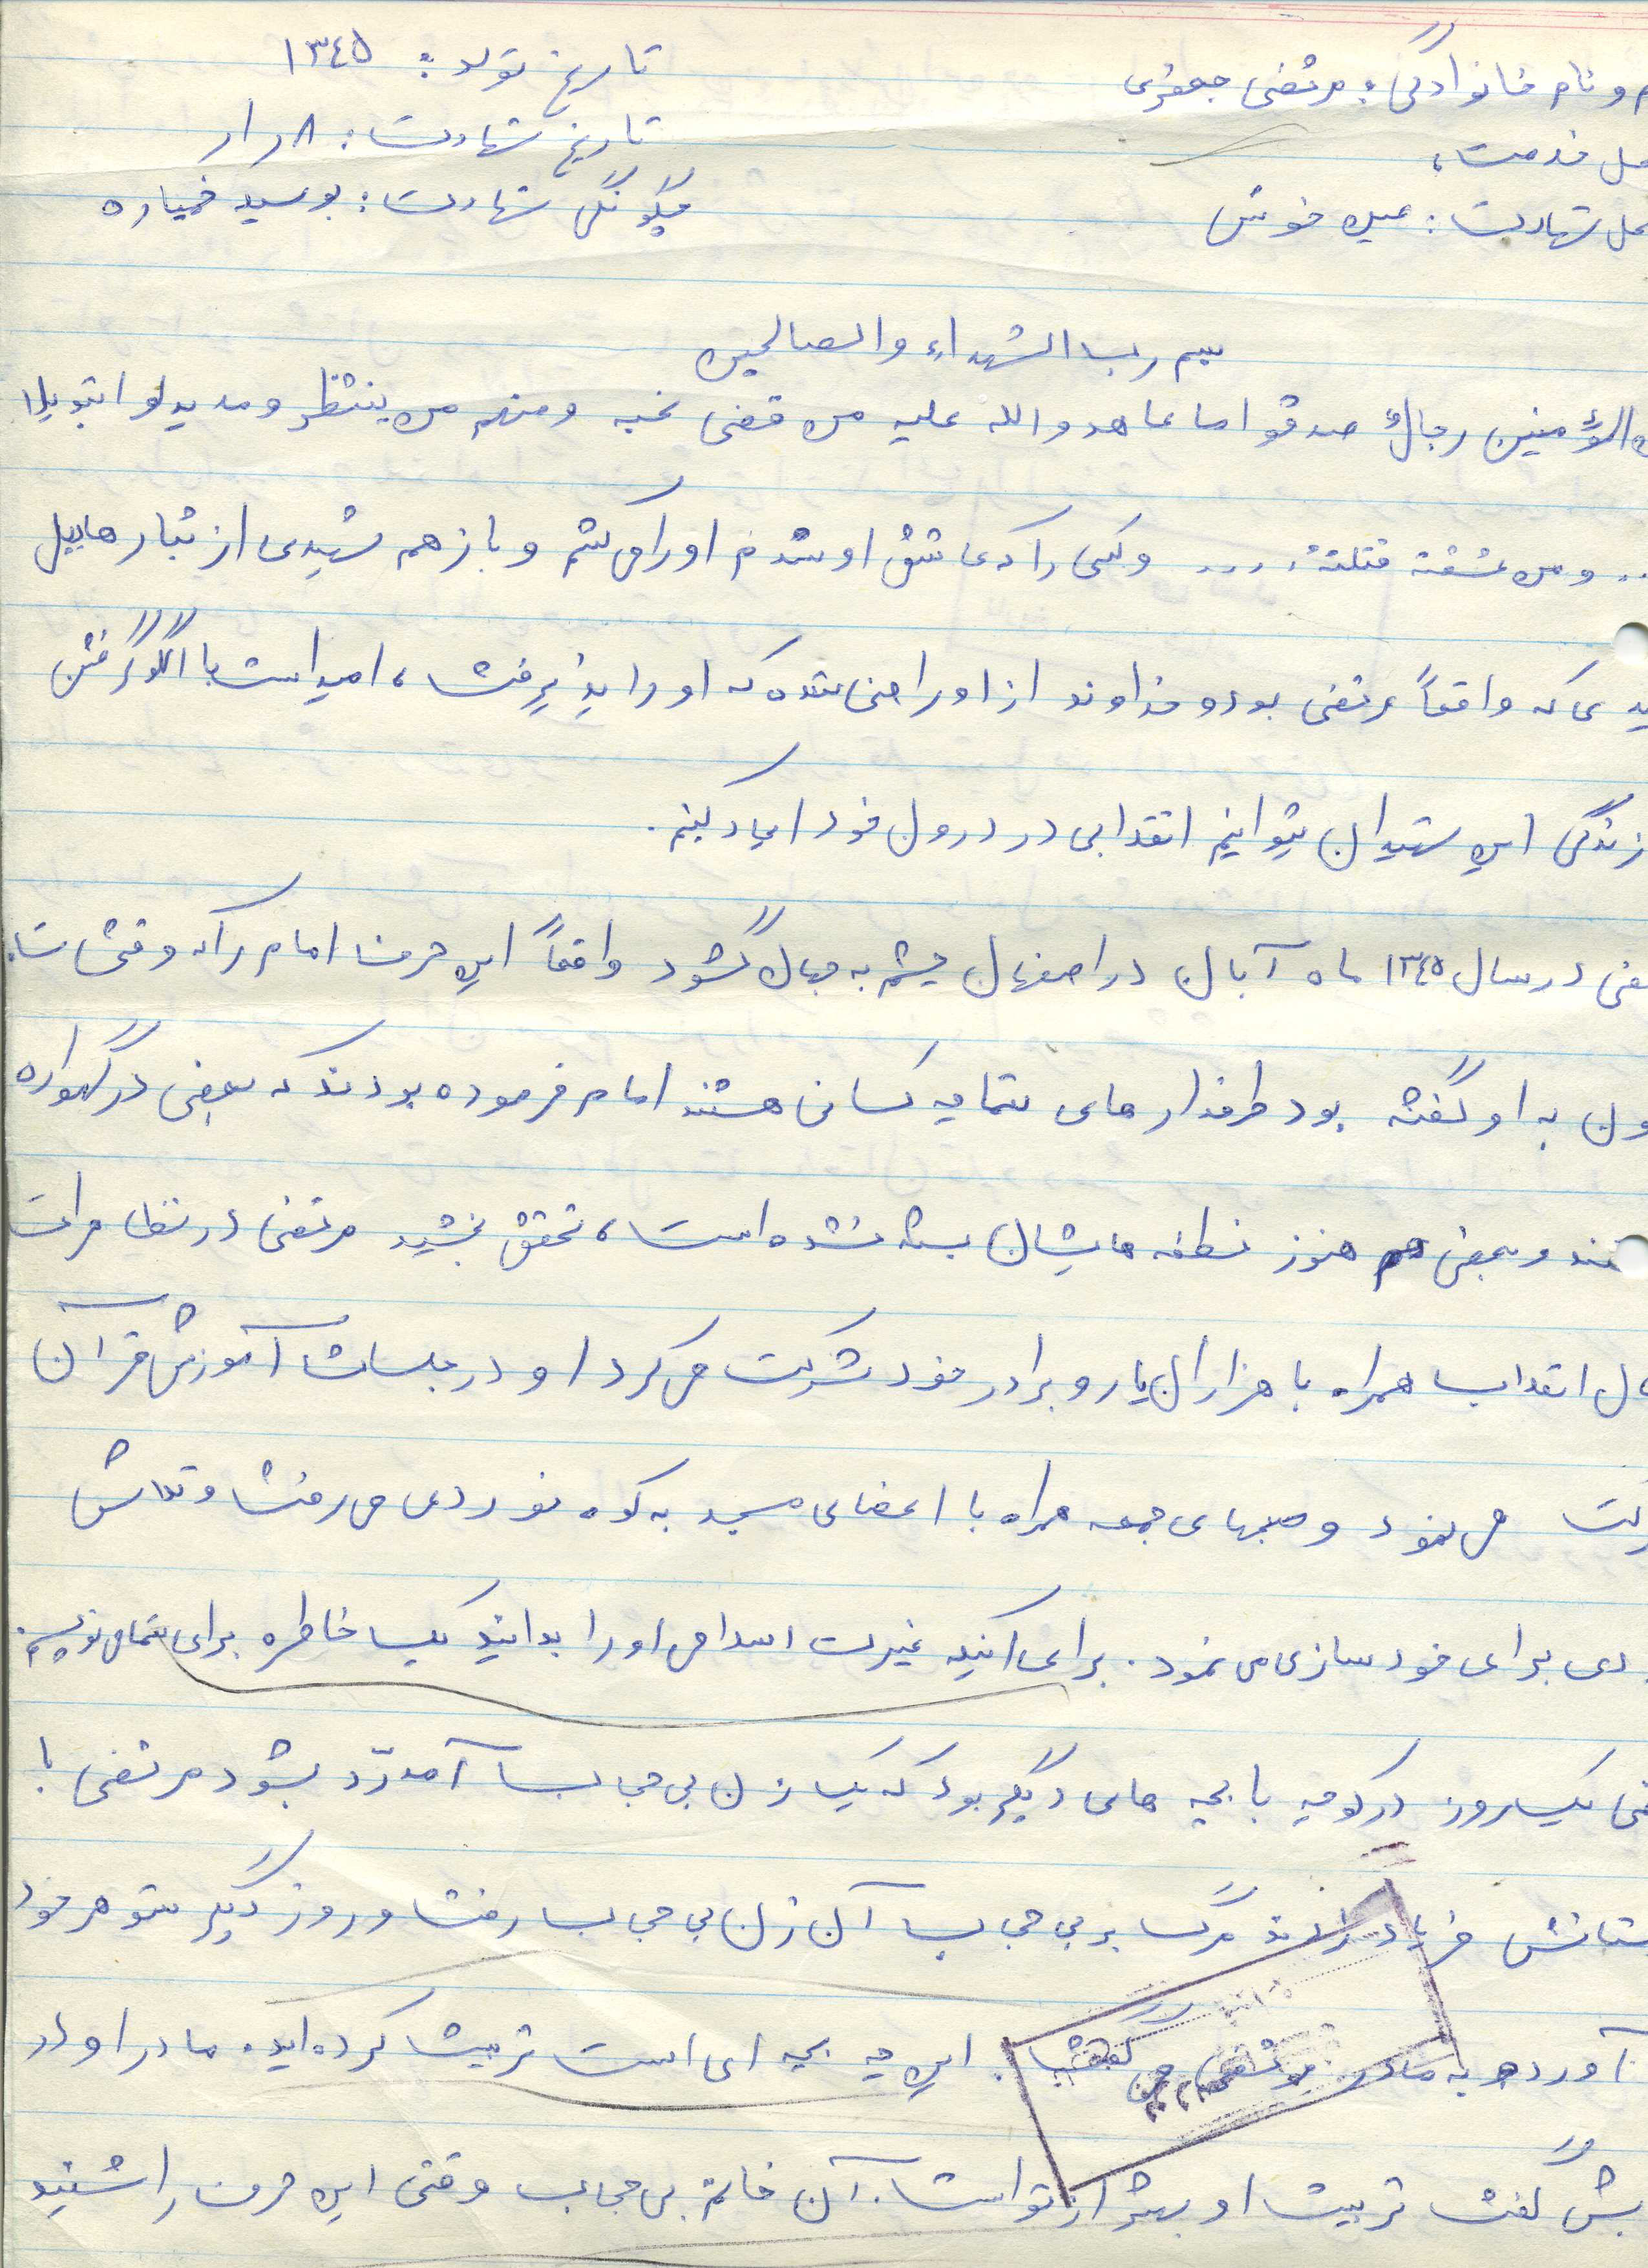 م و نام خانوادگی: مرتضی جعفری
تاریخ تولد: ۱۳۴۵
محل خدمت:
تاریخ شهادت:
محل شهادت: عین خوش
چگونگی شهادت: بوسیله خمپاره
بسم رب الشهداء والصالحین
المؤمنین رجالٌ صدقوا ما عاهدوالله علیه من قضی نحبه ومنهم من ینتظر و مدیدلو ابتدیلا
.. و من عشقته قتلته .... و کسی را که عاشق او شدم او را می کشم و باز هم شهیدی از تبار هابیل
یدی که واقعاً مرتضی بود و خداوند از او راضی شده که او را پذیرفت، امید است با الگو گرفتن
زندگی این شهیدان بتوانیم انقلابی در درون خود ایجاد کنیم.
ضی در سال ۱۳۴۵ ماه آبان در اصفهان چشم به جهان گشود واقعاً این حرف امام را که وقتی شاه
ون به او گفته بود طرفدارهای شما چه کسانی هستند امام فرموده بودند که بعضی در گهواره
تند و بعضی هم هنوز نطفه هایشان بسته نشده است، تحقق بخشید مرتضی در تظاهرات
ان انقلاب همراه با هزاران یار و برادر خود شرکت می کرد او در جلسات آموزش قرآن
رکت می نمود و صبحهای جمعه همراه با اعضای مسجد به کوه نوردی می رفت و تلاش
دی برای خودسازی می نمود. برای اینکه غیرت اسلامی او را بدانید یک خاطره برای شما می نویسم.
ضی یکروز در کوچه با بچه های دیگر بود که یک زن بی حجاب آمد رد بشود مرتضی با
ستانش فریاد زدند مرگ بر بی حجاب آن زن بی حجاب رفت و روز دیگر شوهر خود
آورد و به مادر مرتضی می گفت: این چه بچه ای است تربیت کرده اید. مادر او در
بش گفت تربیت او بهتر از تو است. آن خانم بی حجاب وقتی این حرف را شنید